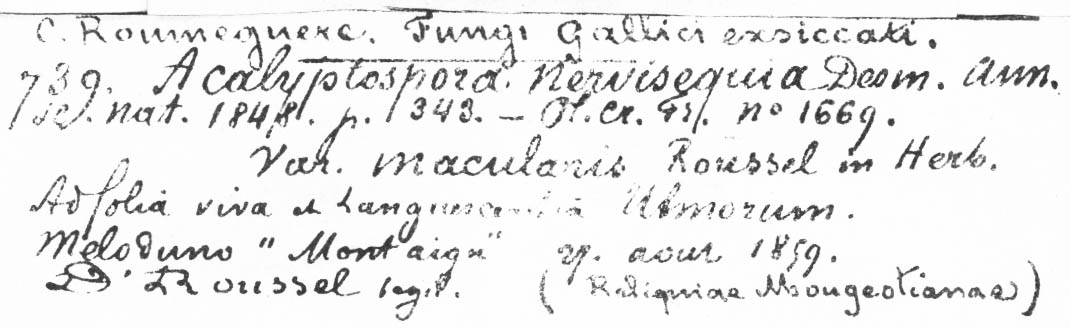 C. Roumeguère. Fungi Gallici exsiccati.
739. Acalyptospora nervisequia Desm. Ann.
sc. nat. 1848. p. 343. — Pl. Cr. Fr. nº 1669.
Var. macularis Roussel in Herb.
Ad folia viva et languescentia Ulmorum.
Meloduno "Montaigu" aout 1859.
Dr Roussel legit. (Reliquiae Mougeotianae)